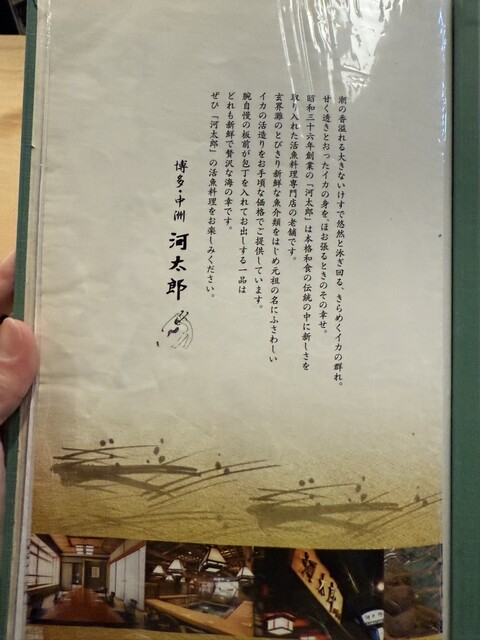 潮の香溢れる大きないけすで悠然と泳ぎ回る、きらめくイカの群れ。
甘く透きとおったイカの身を、ほお張るときのその幸せ。
昭和三十六年創業の「河太郎」は本格和食の伝統の中に新しさを
取り入れた活魚料理専門店の老舗です。
玄界灘のとびきり新鮮な魚介類をはじめ元祖の名にふさわしい
イカの活造りをお手頃な価格でご提供しています。
腕自慢の板前が包丁を入れてお出しする一品は
どれも新鮮で贅沢な海の幸です。
ぜひ「河太郎」の活魚料理をお楽しみください。
博多・中洲 河太郎